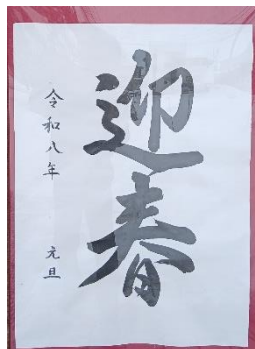 迎春
令和八年 元旦